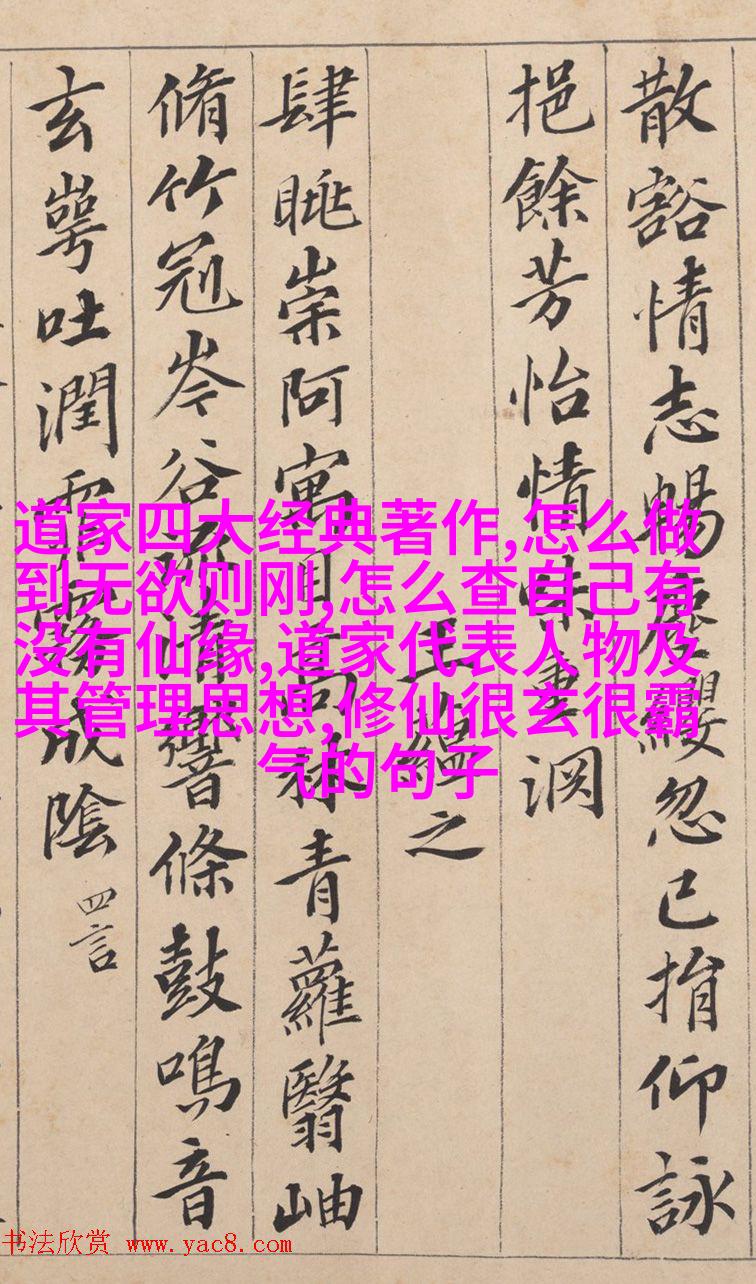 散豁情志暢塵纓忽已捐仰詠
挹餘芳怡情味重渊
王蘊之
肆眺崇阿寓目高林青蘿翳岫
脩竹冠岑谷流清響條鼓鳴音
玄崿吐潤霏霧成陰 四言
道家四大经典著作,怎么做
到无欲则刚,怎么查自己有
没有仙缘,道家代表人物及
其管理思想,修仙很玄很霸
气的句子
书法欣赏 www.yac8.com